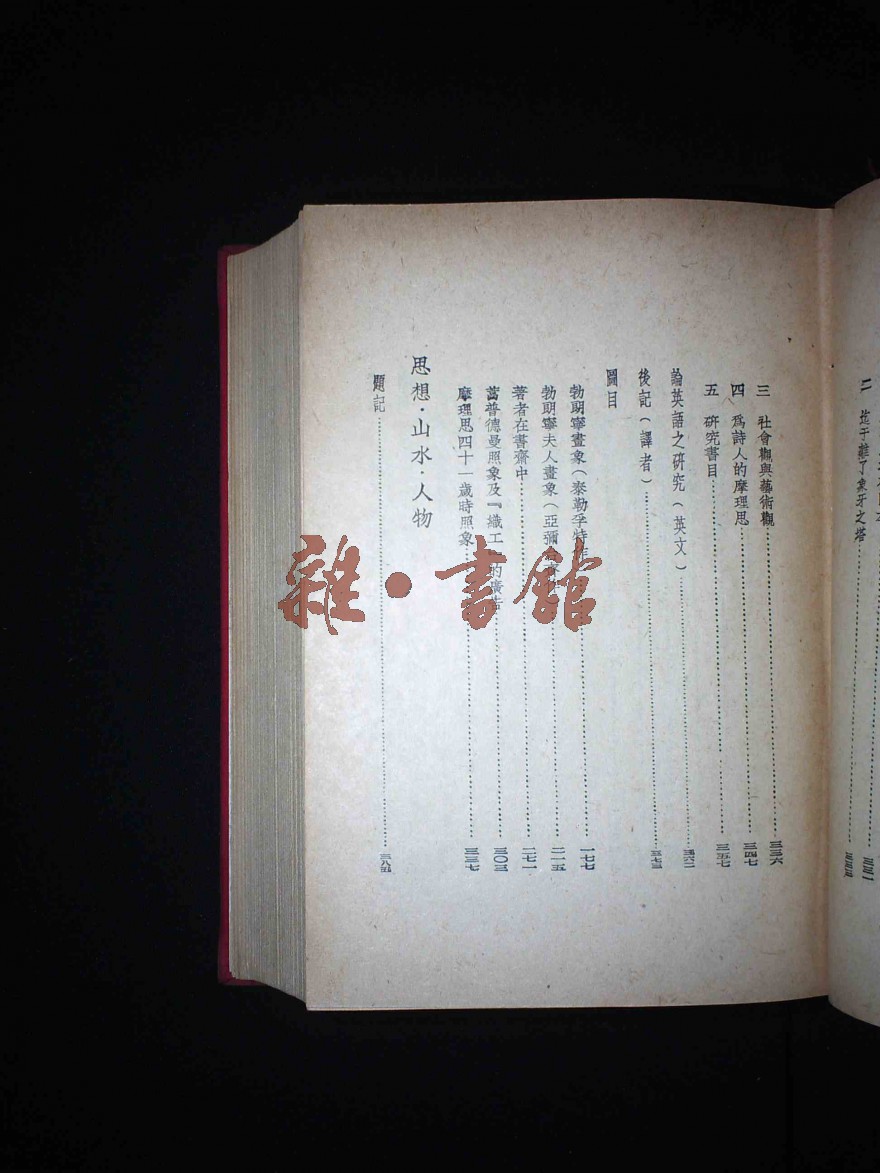 二 迄于離了象牙之塔……三三三
三 社會觀與藝術觀……三三六
四 爲詩人的摩理思……三四七
五 研究書目……三五七
論英語之研究(英文)……三六二
後記(譯者)……三七三
圖目
勃朗寧畫象(泰勒孚特作)……一七七
勃朗寧夫人畫象(亞彌……二一五
著者在書齋中……二七一
藹普德曼照象及『織工』的廣告……三〇三
摩理思四十一歲時照象……三三七
思想·山水·人物
題記……三八五
雜·書館